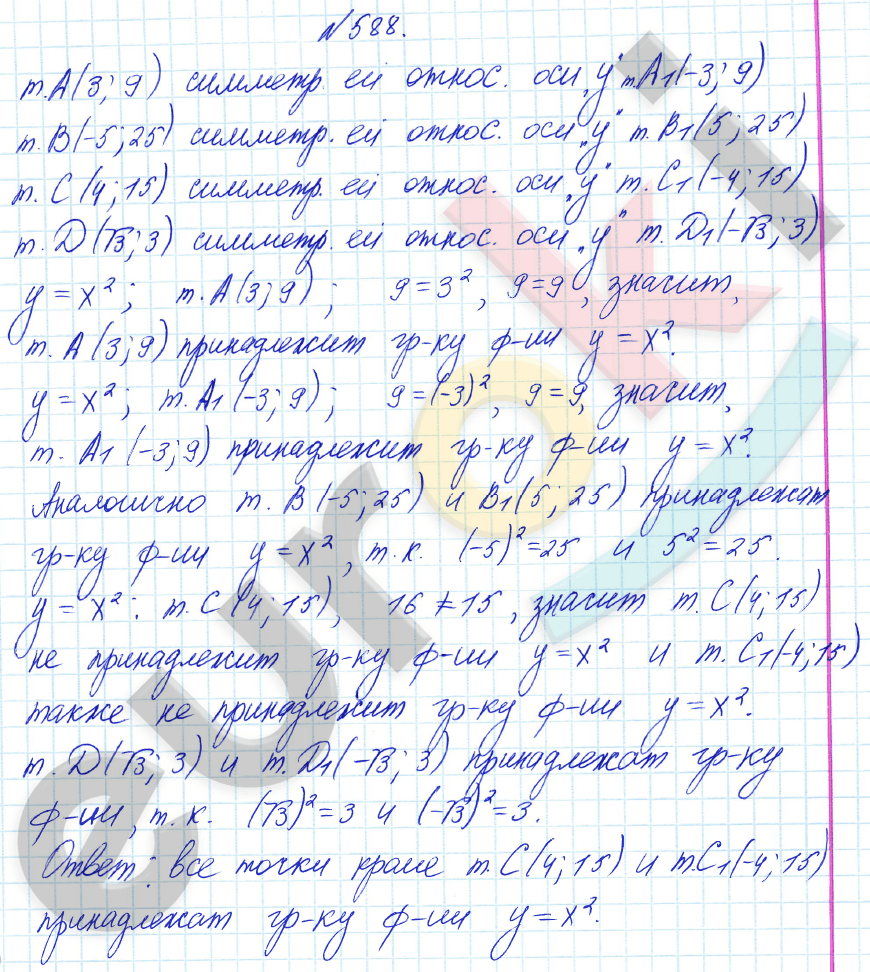 №588.
т.А(3; 9) симметр. ей относ. оси „у" т.А₁(-3; 9)
т.В(-5; 25) симметр. ей относ. оси „у" т.В₁(5; 25)
т.С(4; 15) симметр. ей относ. оси „у" т.С₁(-4; 15)
т.Д(√3; 3) симметр. ей относ. оси „у" т.Д₁(-√3; 3)
у = х²; т.А(3; 9); 9=3², 9=9, значит,
т.А(3; 9) принадлежит гр-ку ф-ии у = х².
у = х²; т.А₁(-3; 9); 9=(-3)², 9=9, значит,
т. А₁(-3; 9) принадлежит гр-ку ф-ии у = х².
Аналогично т.В(-5; 25) и В₁(5; 25) принадлежат
гр-ку ф-ии у = х², т.к. (-5)²=25 и 5²=25.
у = х²: т.С(4; 15), 16 ≠ 15, значит т.С(4; 15)
не принадлежит гр-ку ф-ии у = х² и т.С₁(-4; 15)
также не принадлежит гр-ку ф-ии у = х².
т.Д(√3; 3) и т.Д₁(-√3; 3) принадлежат гр-ку
ф-ии, т.к. (√3)²=3 и (-√3)²=3.
Ответ: все точки кроме т.С(4; 15) и т.С₁(-4; 15)
принадлежат гр-ку ф-ии у = х².
euroki